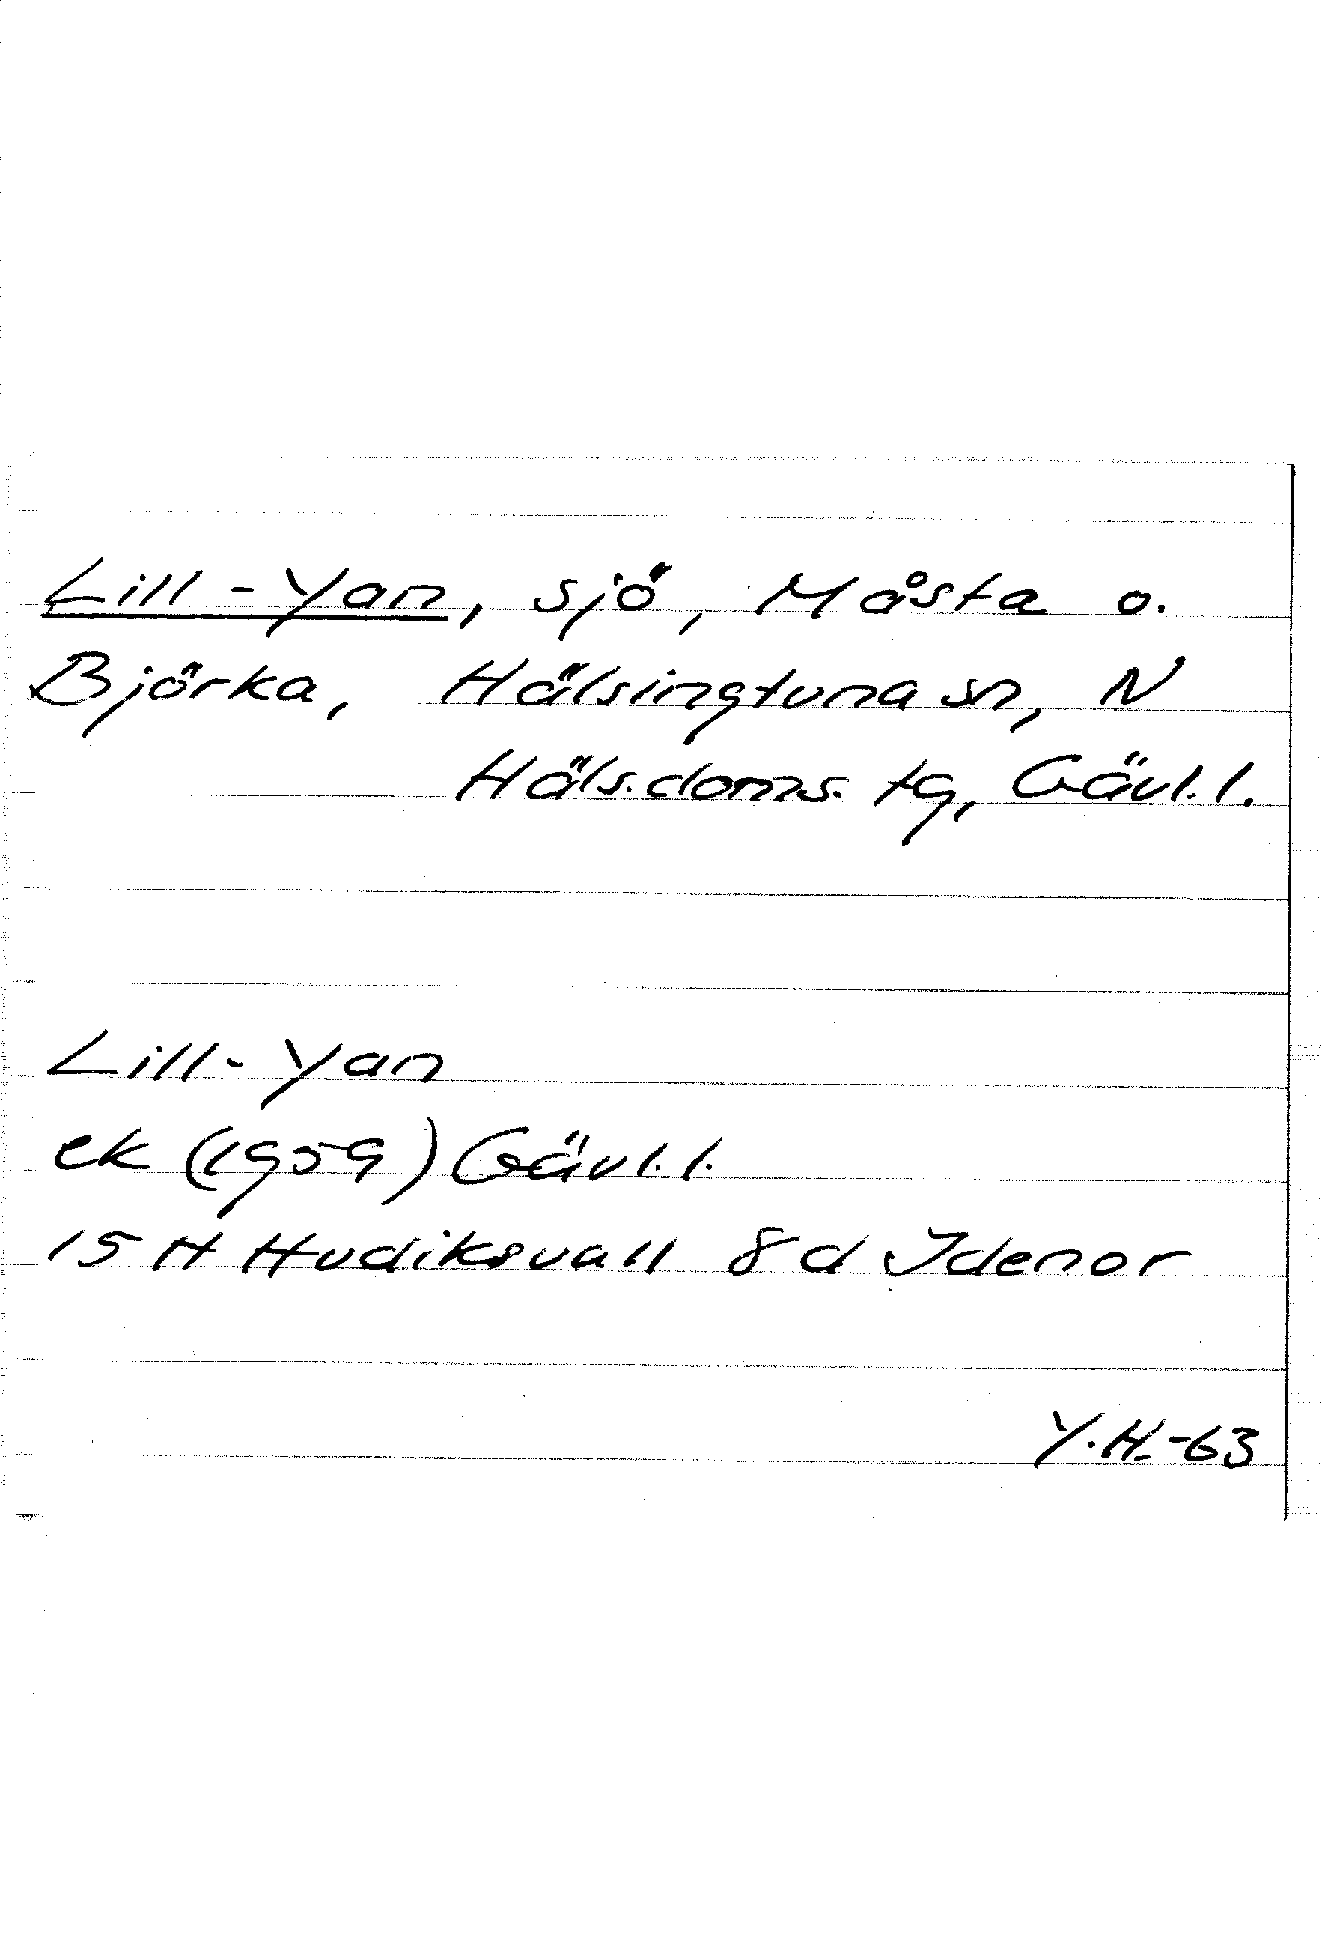 Lill-Yan, sjö, Måsta o.
Björka, Hälsingtuna sn, N
Häls.doms. tg, Gävl.l.
Lill-Yan
ek (1959) Gävl.l.
15 H Hudiksvall 8d Idenor
Y.H.-63